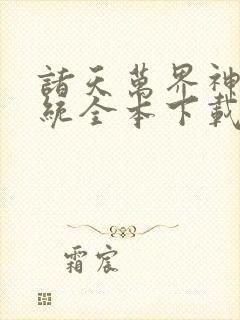 諸天萬界神
統全本下載
霜宸